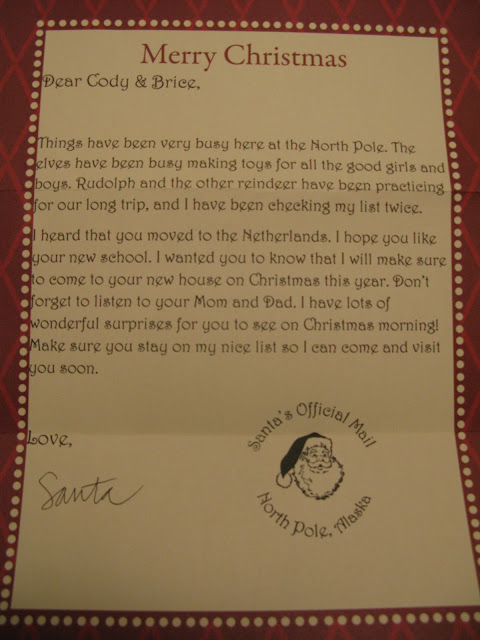 Merry Christmas
Dear Cody & Brice,
Things have been very busy here at the North Pole. The
elves have been busy making toys for all the good girls and
boys. Rudolph and the other reindeer have been practicing
for our long trip, and I have been checking my list twice.
I heard that you moved to the Netherlands. I hope you like
your new school. I wanted you to know that I will make sure
to come to your new house on Christmas this year. Don't
forget to listen to your Mom and Dad. I have lots of
wonderful surprises for you to see on Christmas morning!
Make sure you stay on my nice list so I can come and visit
you soon.
Love,
Santa
Santa's Official Mail
North Pole, Alaska